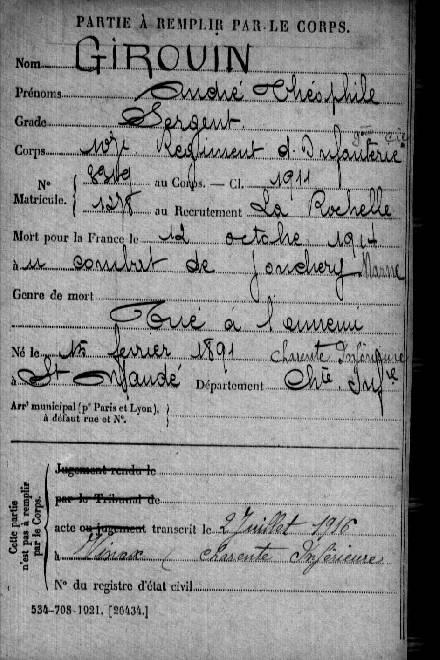 PARTIE À REMPLIR PAR LE CORPS.
Nom GIROUIN
Prénoms André Théophile
Grade Sergent
Corps 107e Régiment d'Infanterie 9ème Cie
N° Matricule. { au Corps. — Cl. 1911
1278 au Recrutement La Rochelle
Mort pour la France le 12 octobre 1914
à u combat de Jonchery Marne
Genre de mort
Tué à l'ennemi
Né le février 1891 Charente Inférieure
à St Département Chte Infre
Arrt municipal (pr Paris et Lyon), à défaut rue et N°.
Cette partie n'est pas à remplir par le Corps.
Jugement rendu le
par le Tribunal de
acte ou jugement transcrit le 2 Juillet 1916
à Vinax (Charente Inférieure
N° du registre d'état civil
534-708-1021. [26434.]